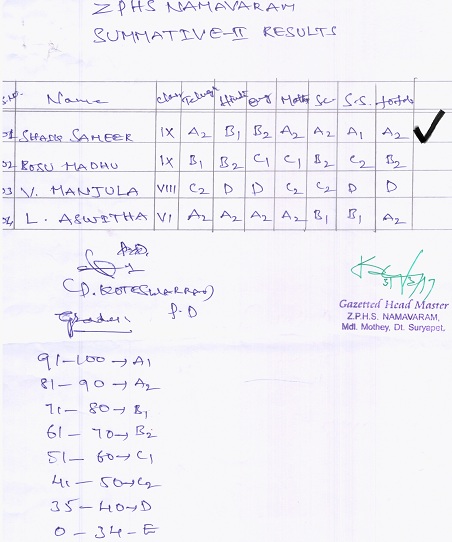 Z.P.H.S NAMAVARAM
SUMMATIVE-II RESULTS
S.No. Name Class Telugu Hindi Eng Maths Sc S.S. Total
01 SHAIK SAMEER IX A2 B1 B2 A2 A2 A1 A2
02 BOSU MADHU IX B1 B2 C1 C1 B2 C2 B2
03 V. MANJULA VIII C2 D D C2 C2 D D
04 L. ASWITHA VI A2 A2 A2 A2 B1 B1 A2
(P. KOTESWARRAO)
P.D
Grades:
91-100 → A1
81-90 → A2
71-80 → B1
61-70 → B2
51-60 → C1
41-50 → C2
35-40 → D
0-34-E
Gazetted Head Master
Z.P.H.S. NAMAVARAM,
Mdl. Mothey, Dt. Suryapet.